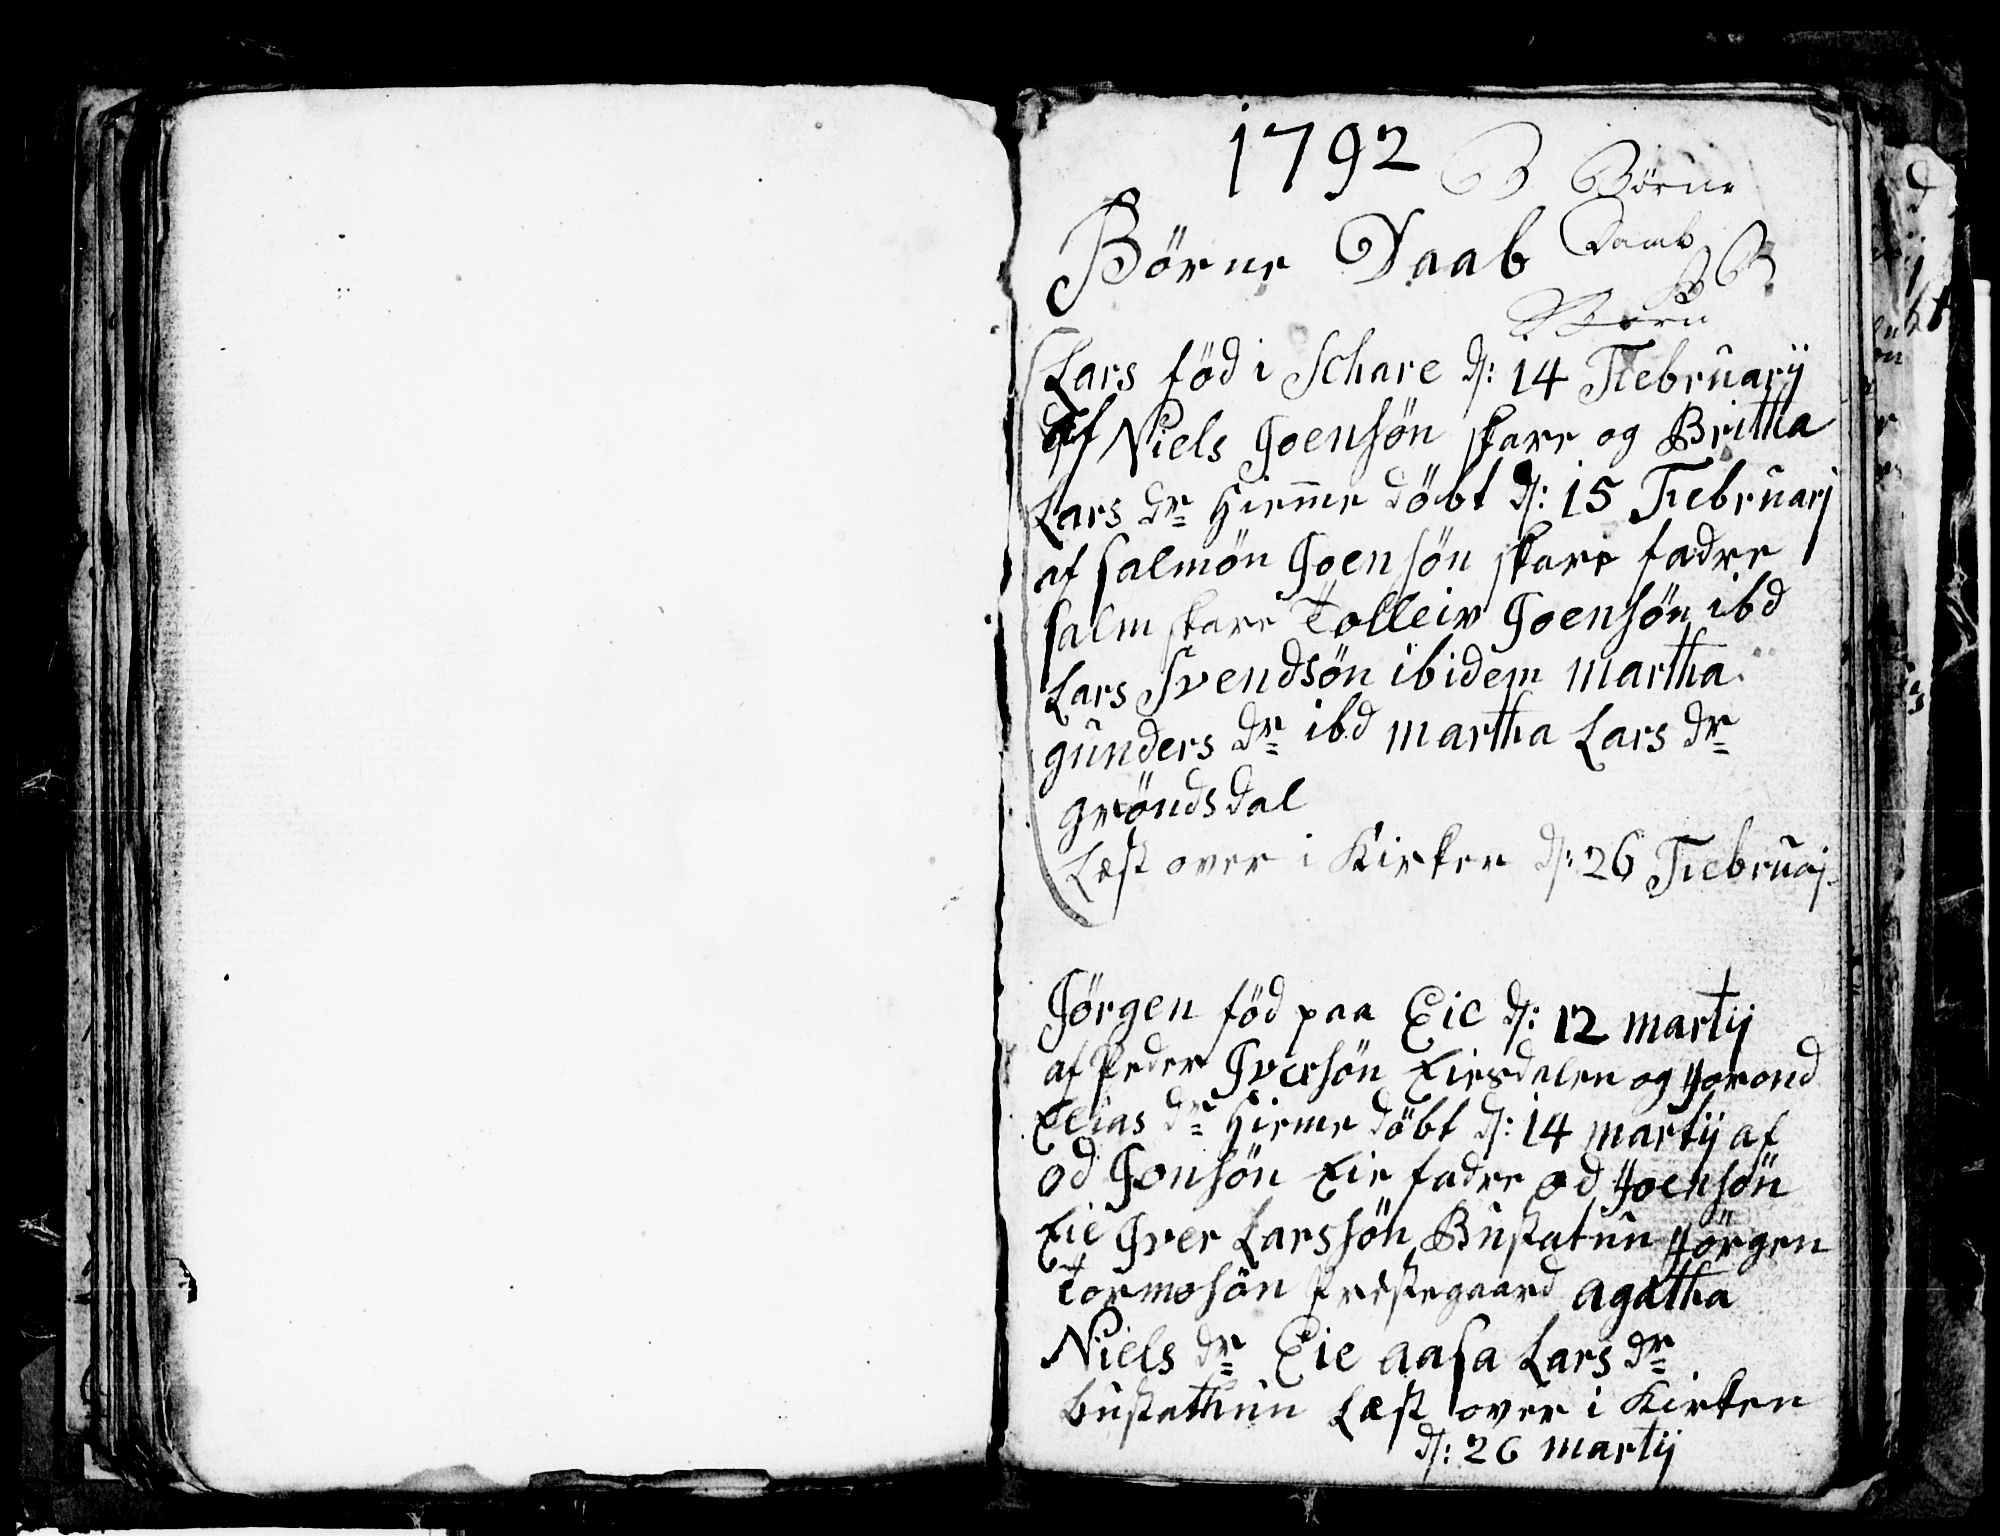 1792
B Börne
Börne Daab Daab
B B
Börn
Lars föd i Schare d: 14 Februarij
af Niels Joensön skare og Britha
Lars dr Hieme döbt d: 15 Februarj
af salmön Joensön skare fadre
salm skare Tolleiv Joensön ibd
Lars Svendsön ibidem martha
gunders dr ibd martha Lars dr
gröndsdal
Læst over i Kirken d: 26 Februaj
Jörgen föd paa Eie d: 12 martij
af peder Iversön Eiesdalen og Jorond
Elias dr Hieme döbt d: 14 martij af
od Jonsön Eie fadre od Joensön
Eie Iver Larssön Bustetun Jörgen
Tormosön prestegaard agatha
Niels dr Eie aasa Lars dr
bustethun Læst over i Kirken
d: 26 martij